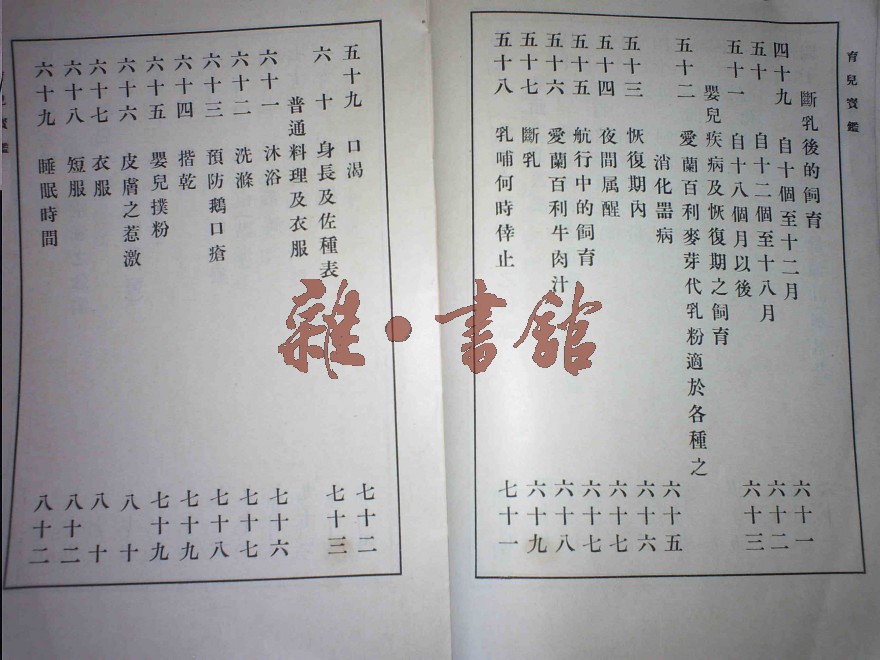 育兒寶鑑
斷乳後的飼育
四十九 自十個至十二月 六十一
五十 自十二個至十八月 六十二
五十一 自十八個月以後 六十三
嬰兒疾病及恢復期之飼育
五十二 愛蘭百利麥芽代乳粉適於各種之
消化器病 六十五
五十三 恢復期內 六十六
五十四 夜間属醒 六十七
五十五 航行中的飼育 六十七
五十六 愛蘭百利牛肉汁 六十八
五十七 斷乳 六十九
五十八 乳哺何時倖止 七十一
五十九 口渴 七十二
六十 身長及佐種表 七十三
普通料理及衣服
六十一 沐浴 七十六
六十二 洗滌 七十七
六十三 預防鵝口瘡 七十八
六十四 揩乾 七十九
六十五 嬰兒撲粉 七十九
六十六 皮膚之惹激 八十
六十七 衣服 八十
六十八 短服 八十二
六十九 睡眠時間 八十二
兒寶鑑
雜·書館